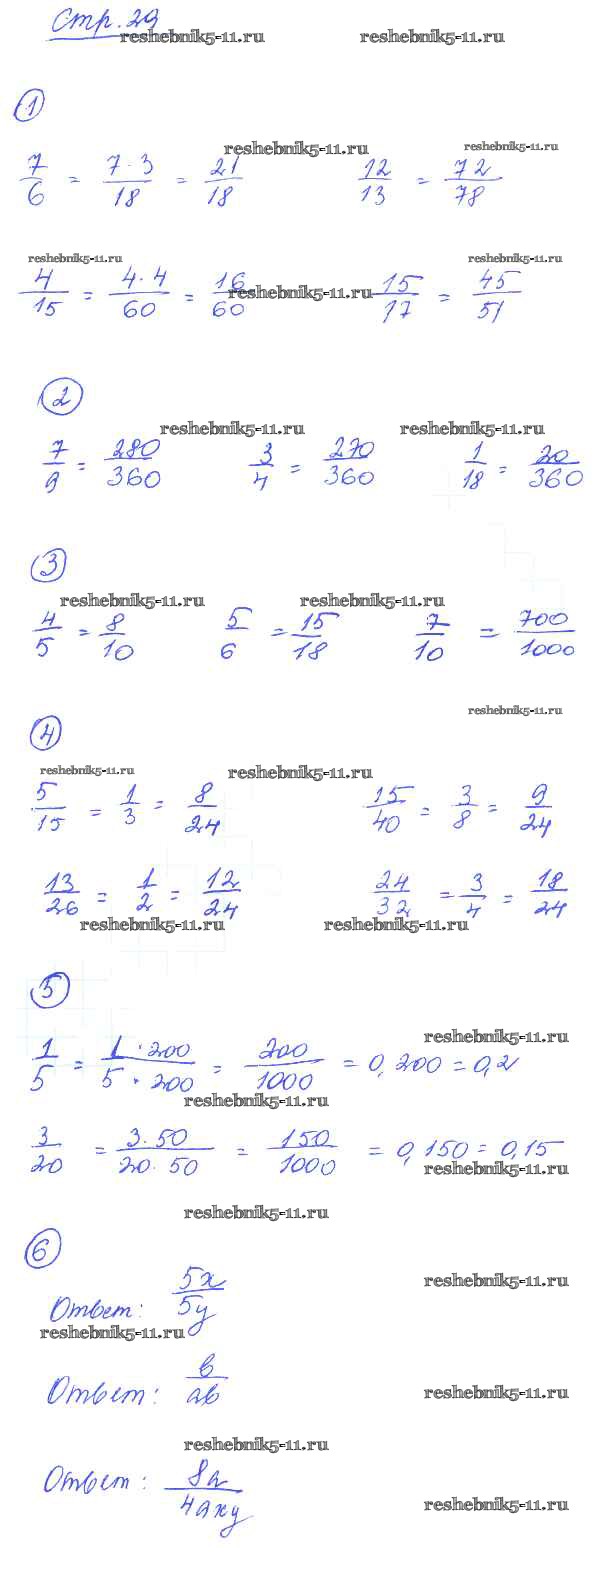 Стр. 29
reshebnik5-11.ru reshebnik5-11.ru
1
reshebnik5-11.ru reshebnik5-11.ru
7/6 = 7·3/18 = 21/18 12/13 = 72/78
reshebnik5-11.ru reshebnik5-11.ru
4/15 = 4·4/60 = 16/60 15/17 = 45/51
reshebnik5-11.ru
2
reshebnik5-11.ru reshebnik5-11.ru
7/9 = 280/360 3/4 = 270/360 1/18 = 20/360
3
reshebnik5-11.ru reshebnik5-11.ru
4/5 = 8/10 5/6 = 15/18 7/10 = 700/1000
reshebnik5-11.ru
4
reshebnik5-11.ru reshebnik5-11.ru
5/15 = 1/3 = 8/24 15/40 = 3/8 = 9/24
13/26 = 1/2 = 12/24 24/32 = 3/4 = 18/24
reshebnik5-11.ru reshebnik5-11.ru
5
reshebnik5-11.ru
1/5 = 1·200/5·200 = 200/1000 = 0,200 = 0,2
reshebnik5-11.ru
3/20 = 3·50/20·50 = 150/1000 = 0,150 = 0,15
reshebnik5-11.ru
reshebnik5-11.ru
6
reshebnik5-11.ru
Ответ: 5x/5y
reshebnik5-11.ru
Ответ: в/ав
reshebnik5-11.ru
reshebnik5-11.ru
Ответ: 8a/4axy
reshebnik5-11.ru